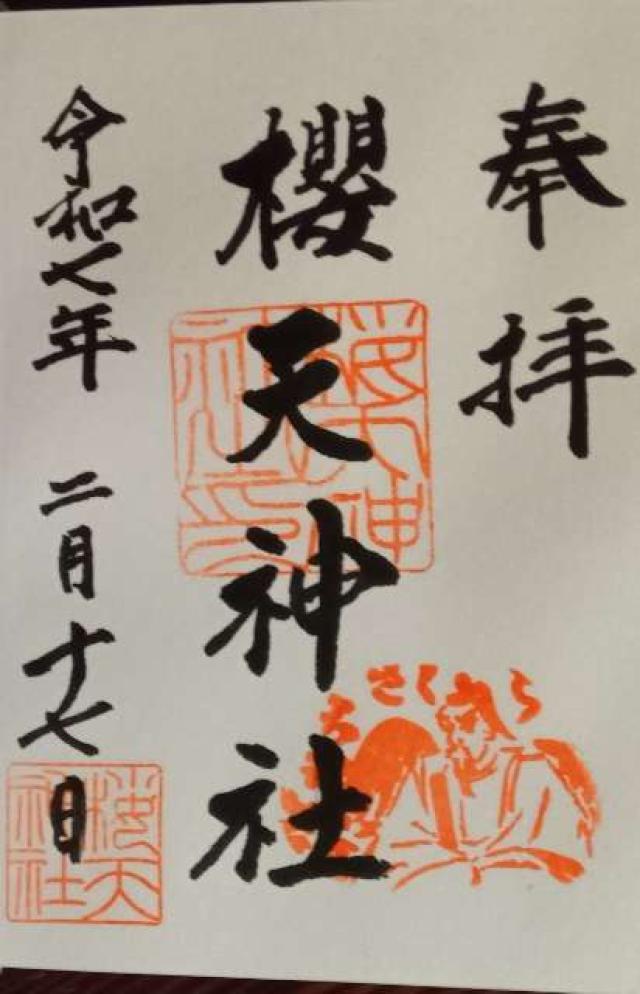 奉拝
櫻天神社
令和七年 二月十七日
櫻天神社印
さくら
櫻天神社